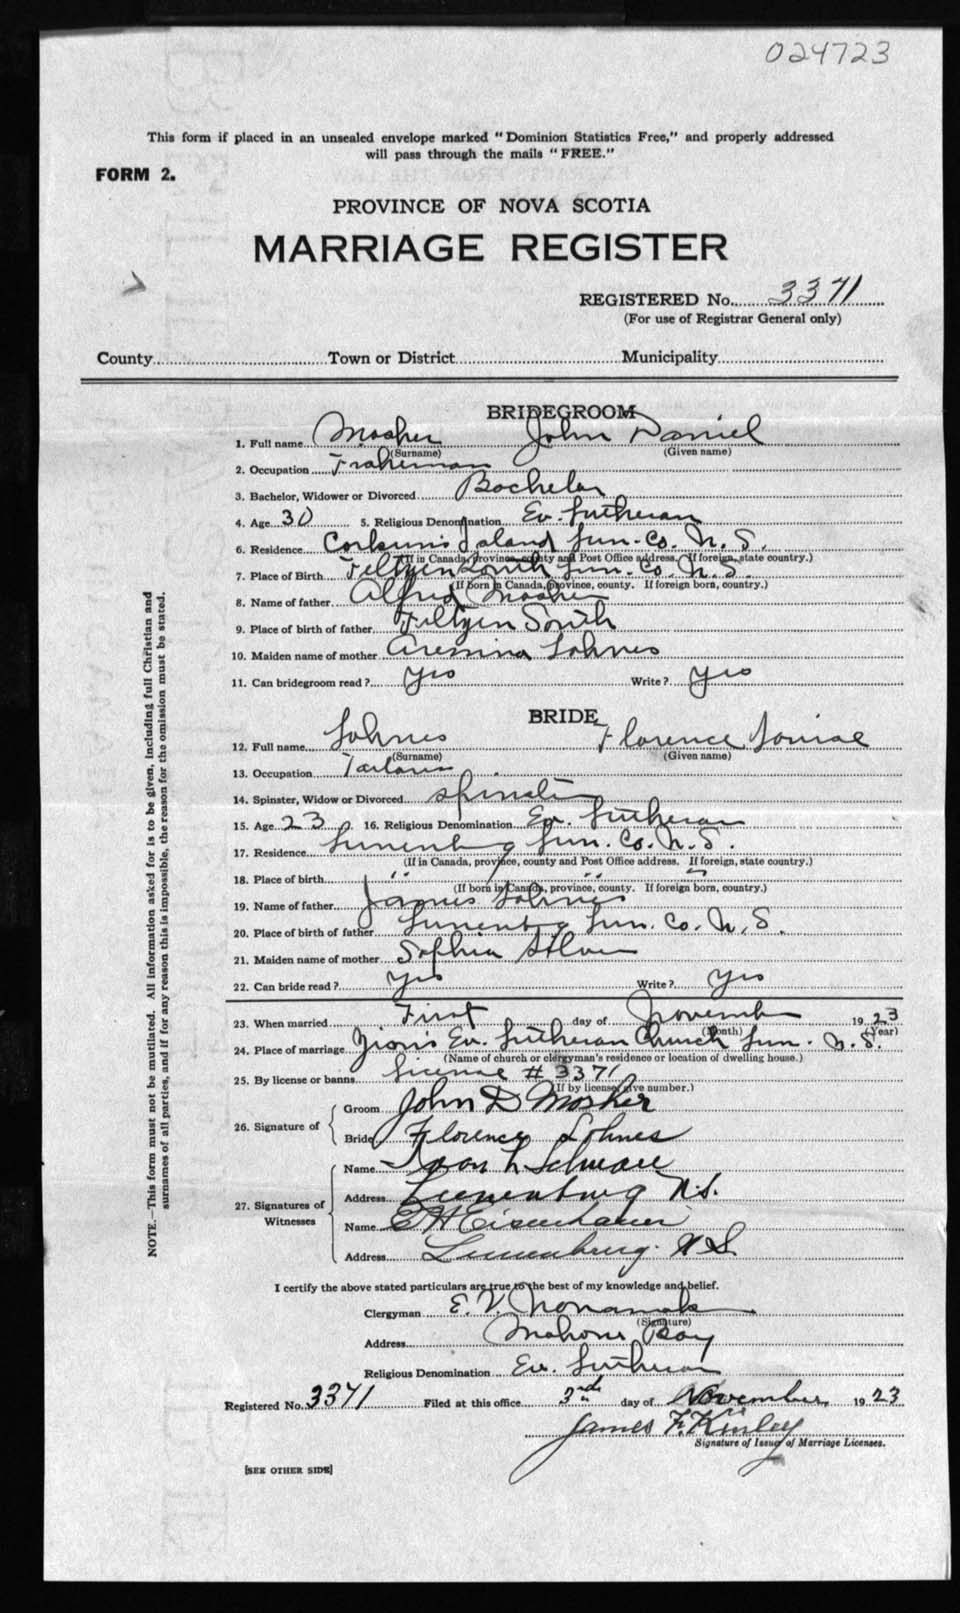 024723
This form if placed in an unsealed envelope marked "Dominion Statistics Free," and properly addressed
will pass through the mails "FREE."
FORM 2.
PROVINCE OF NOVA SCOTIA
MARRIAGE REGISTER
REGISTERED No. 3371
(For use of Registrar General only)
County Town or District Municipality
BRIDEGROOM
1. Full name Mosher John Daniel
(Surname) (Given name)
2. Occupation Fisherman
3. Bachelor, Widower or Divorced Bachelor
4. Age 30 5. Religious Denomination Ev. Lutheran
6. Residence Corkum's Island Lun. Co. N. S.
(If in Canada, province, county and Post Office address. If foreign, state country.)
7. Place of Birth Feltzen South Lun. Co. N. S.
(If born in Canada, province, county. If foreign born, country.)
8. Name of father Alfred Mosher
9. Place of birth of father Feltzen South
10. Maiden name of mother Aremina Lohnes
11. Can bridegroom read? Yes Write? Yes
BRIDE
12. Full name Lohnes Florence Louise
(Surname) (Given name)
13. Occupation Tailoress
14. Spinster, Widow or Divorced Spinster
15. Age 23 16. Religious Denomination Ev. Lutheran
17. Residence Lunenburg Lun. Co. N. S.
(If in Canada, province, county and Post Office address. If foreign, state country.)
18. Place of birth " " "
(If born in Canada, province, county. If foreign born, country.)
19. Name of father James Lohnes
20. Place of birth of father Lunenburg Lun. Co. N. S.
21. Maiden name of mother Sophia
22. Can bride read? Yes Write? Yes
23. When married First day of November 1923
(Month) (Year)
24. Place of marriage Zion's Ev. Lutheran Church Lun. N. S.
(Name of church or clergyman's residence or location of dwelling house.)
25. By license or banns License # 3371
(If by license, give number.)
26. Signature of Groom John D Mosher
Bride Florence Lohnes
27. Signatures of Witnesses Name L Schware
Address Lunenburg N.S.
Name E H Eisenhauer
Address Lunenburg. N S
I certify the above stated particulars are true to the best of my knowledge and belief.
Clergyman E. V. Nonamaker
(Signature)
Address Mahone Bay
Religious Denomination Ev. Lutheran
Registered No. 3371 Filed at this office 3rd day of November 1923
James F. Kinley
Signature of Issuer of Marriage Licenses.
[SEE OTHER SIDE]
NOTE.—This form must not be mutilated. All information asked for is to be given, including full Christian and
surnames of all parties, and if for any reason this is impossible, the reason for the omission must be stated.